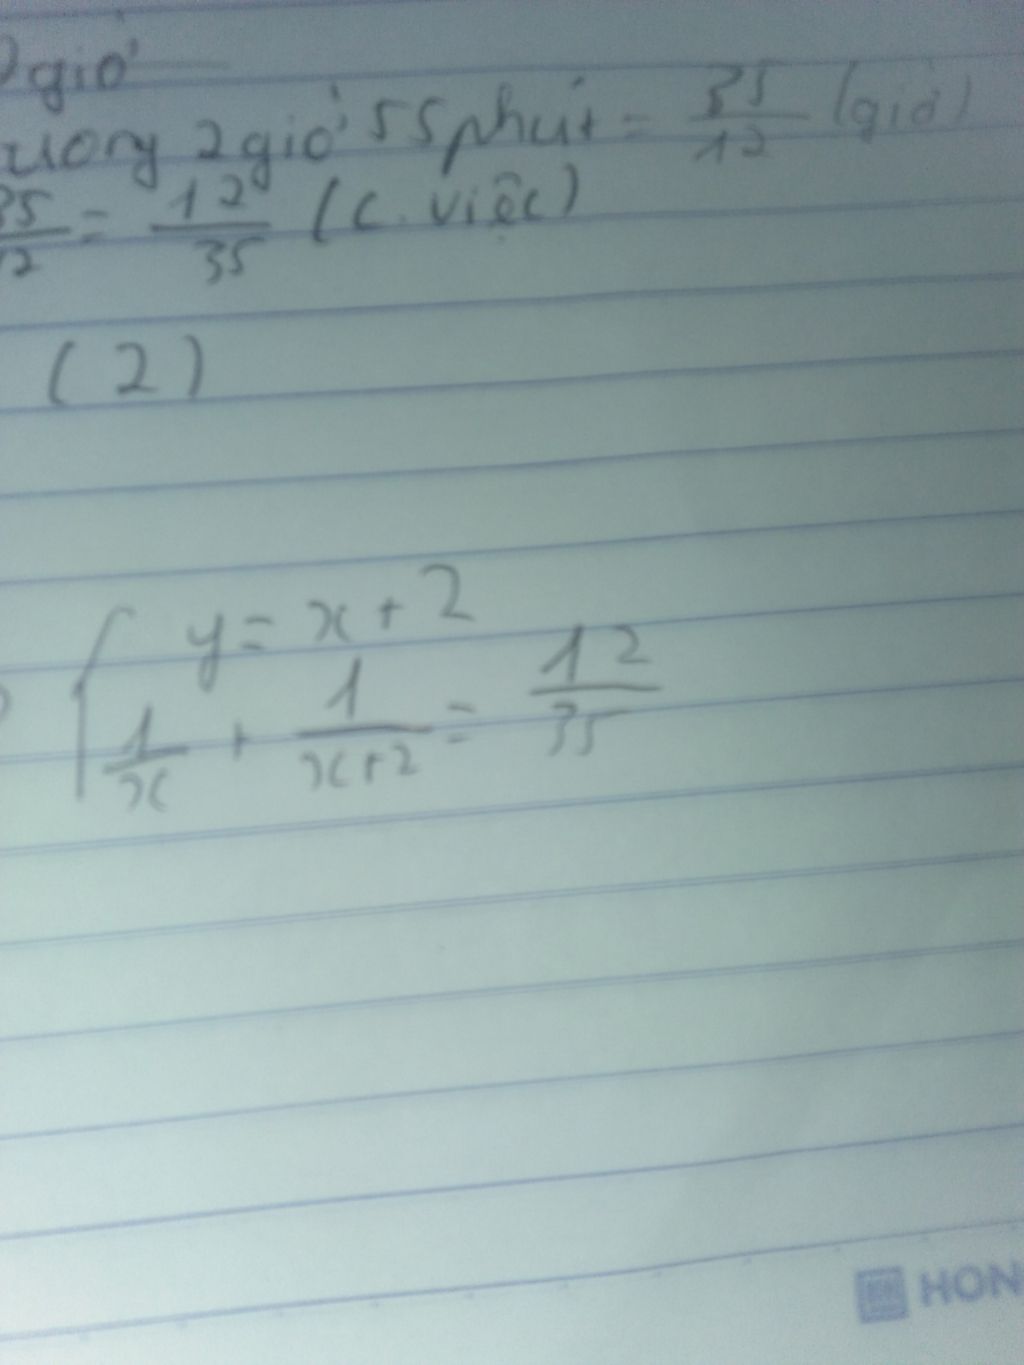 giờ
2 giờ 55 phút = 35/12 (giờ)
35/12 = 12/35 (c. việc)
(2)
{ y = x + 2
1/x + 1/x+2 = 12/35
HON